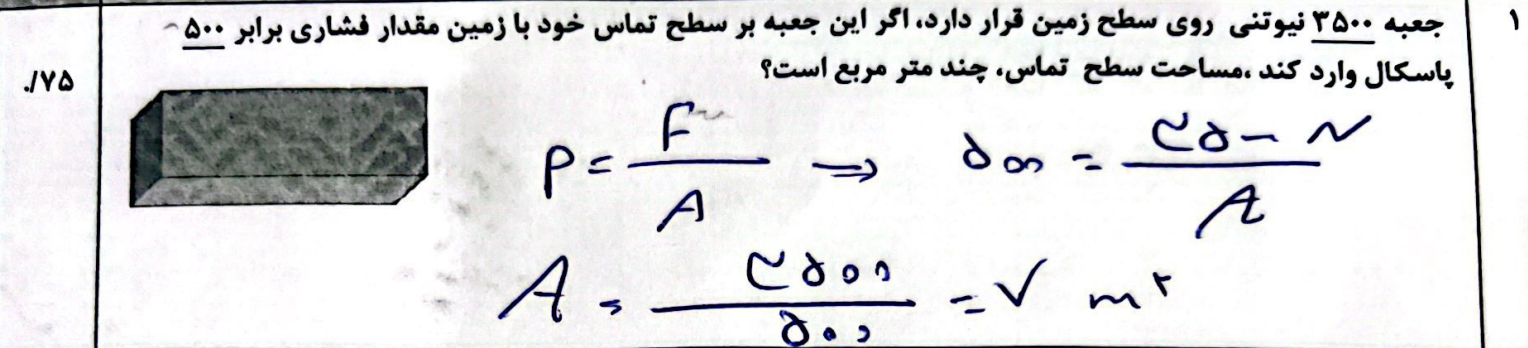 ۱
جعبه ۳۵۰۰ نیوتنی روی سطح زمین قرار دارد، اگر این جعبه بر سطح تماس خود با زمین مقدار فشاری برابر ۵۰۰
پاسکال وارد کند ،مساحت سطح تماس، چند متر مربع است؟
./۷۵
P = F / A ⇒ ۵۰۰ = ۳۵۰۰ N / A
A = ۳۵۰۰ / ۵۰۰ = ۷ m²